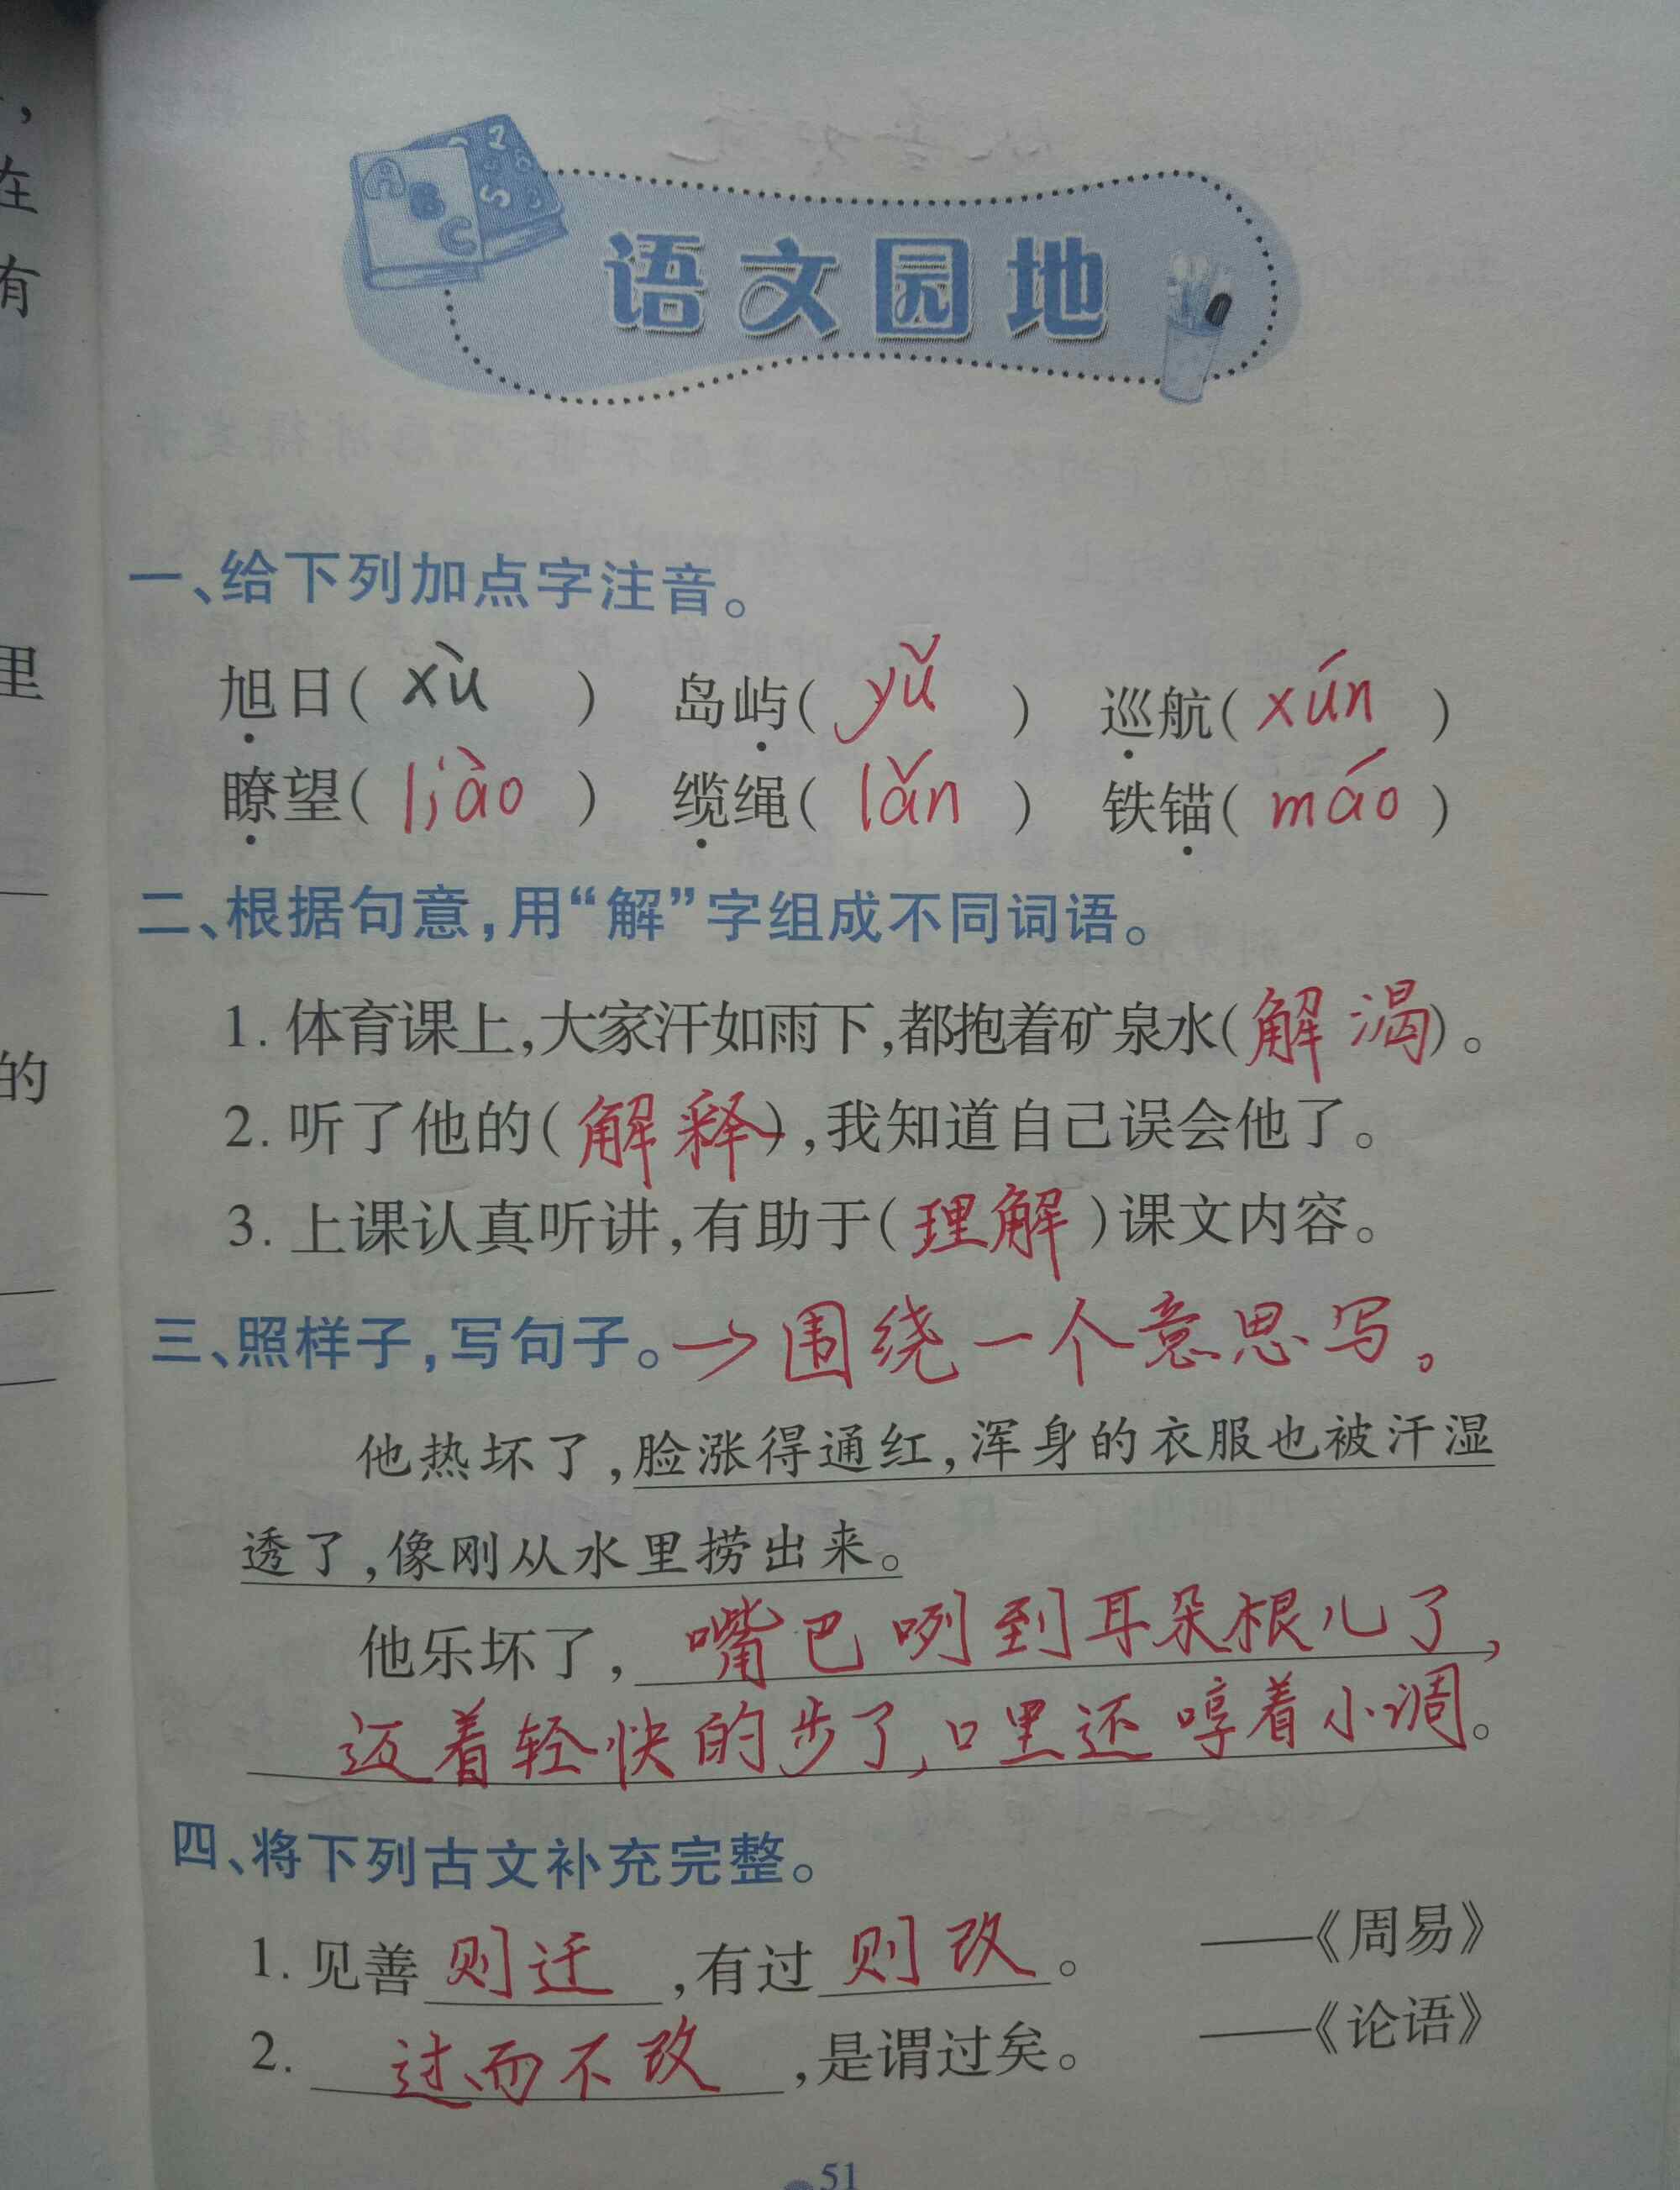 语文园地
一、给下列加点字注音。
旭日( xù ) 岛屿( yǔ ) 巡航( xún )
瞭望( liào ) 缆绳( lǎn ) 铁锚( máo )
二、根据句意,用“解”字组成不同词语。
1. 体育课上,大家汗如雨下,都抱着矿泉水(解渴)。
2. 听了他的(解释),我知道自己误会他了。
3. 上课认真听讲,有助于(理解)课文内容。
三、照样子,写句子。→围绕一个意思写。
他热坏了,脸涨得通红,浑身的衣服也被汗湿
透了,像刚从水里捞出来。
他乐坏了,嘴巴咧到耳朵根儿了,
迈着轻快的步了,口里还哼着小调。
四、将下列古文补充完整。
1. 见善则迁,有过则改。 ——《周易》
2. 过而不改,是谓过矣。 ——《论语》
51
,
在
有
里
的
A B C
2
5